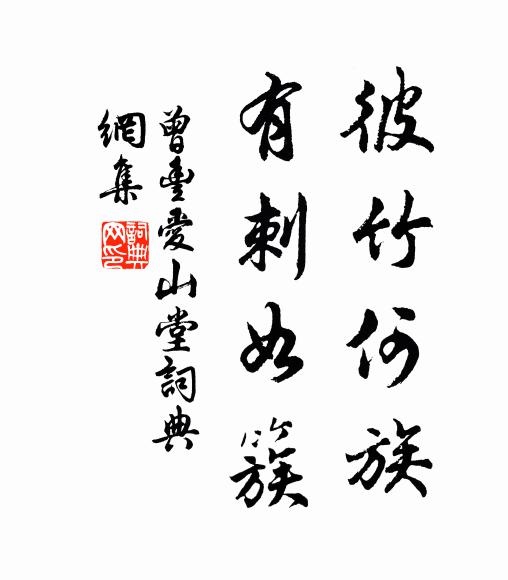 彼竹何族
有刺如簇
曾豐愛山堂詞典
網集
詞典
网印